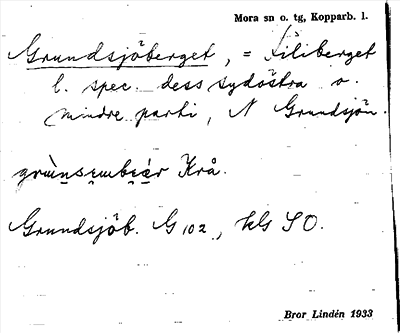 Mora sn o. tg, Kopparb. l.
Grundsjöberget, = Liliberget
l. spec. dess sydöstra o.
mindre parti, N Grundsjön.
Krå.
Grundsjöb. G 102, kls SO.
Bror Lindén 1933